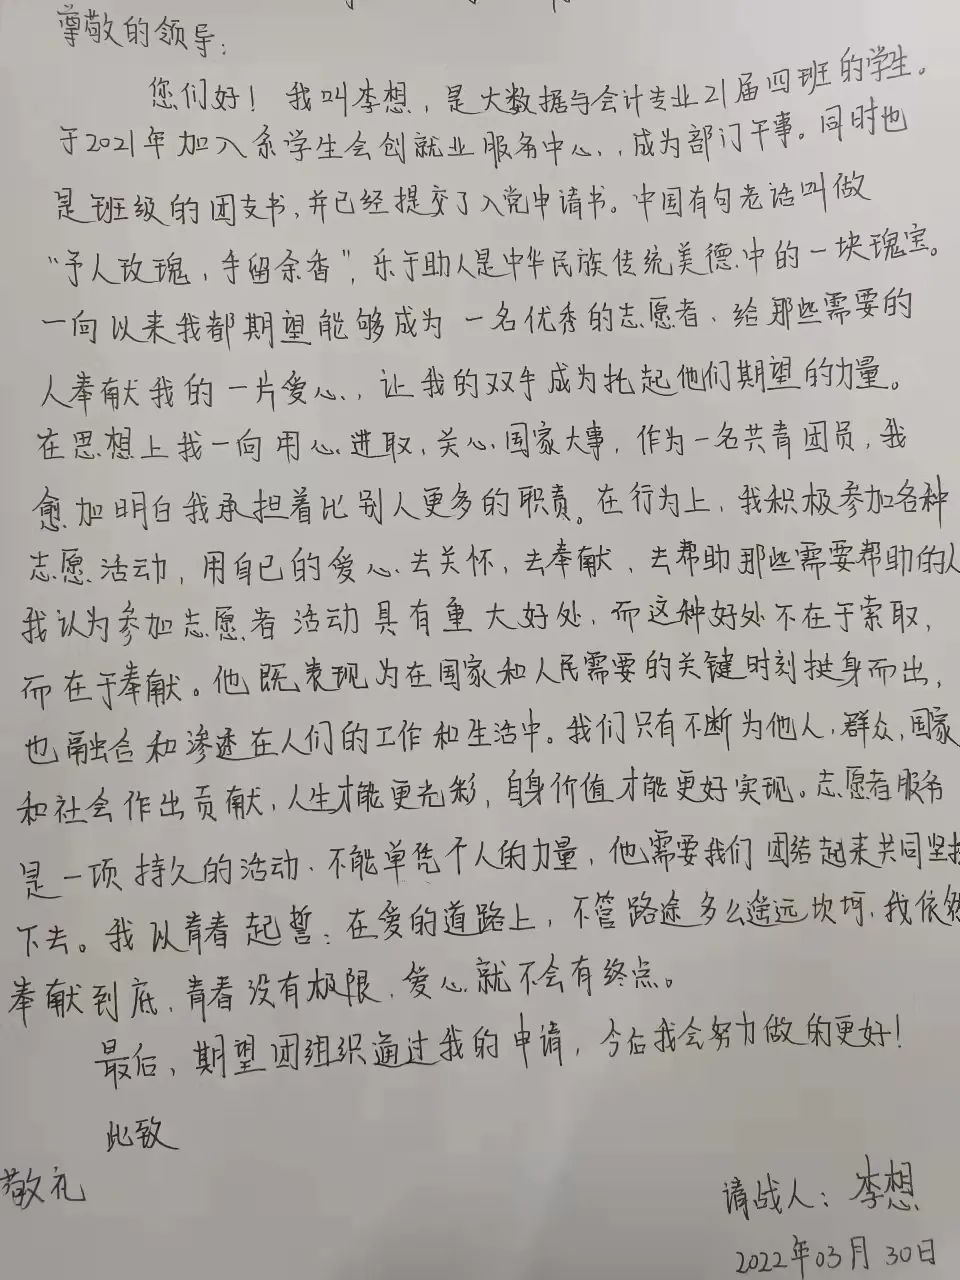 尊敬的领导：
您们好！我叫李想，是大数据与会计专业21届四班的学生。
于2021年加入系学生会创就业服务中心，成为部门干事。同时也
是班级的团支书，并已经提交了入党申请书。中国有句老话叫做
“予人玫瑰，手留余香”，乐于助人是中华民族传统美德中的一块瑰宝。
一向以来我都期望能够成为一名优秀的志愿者、给那些需要的
人奉献我的一片爱心，让我的双手成为托起他们期望的力量。
在思想上我一向用心进取，关心国家大事，作为一名共青团员，我
愈加明白我承担着比别人更多的职责。在行为上，我积极参加各种
志愿活动，用自己的爱心去关怀，去奉献，去帮助那些需要帮助的人
我认为参加志愿者活动具有重大好处，而这种好处不在于索取，
而在于奉献。他既表现为在国家和人民需要的关键时刻挺身而出，
也融合和渗透在人们的工作和生活中。我们只有不断为他人，群众，国家
和社会作出贡献，人生才能更光彩，自身价值才能更好实现。志愿者服务
是一项持久的活动、不能单凭个人的力量，他需要我们团结起来共同坚持
下去。我以青春起誓：在爱的道路上，不管路途多么遥远坎坷，我依然
奉献到底，青春没有极限，爱心就不会有终点。
最后，期望团组织通过我的申请，今后我会努力做的更好！
此致
敬礼
请战人：李想
2022年03月30日